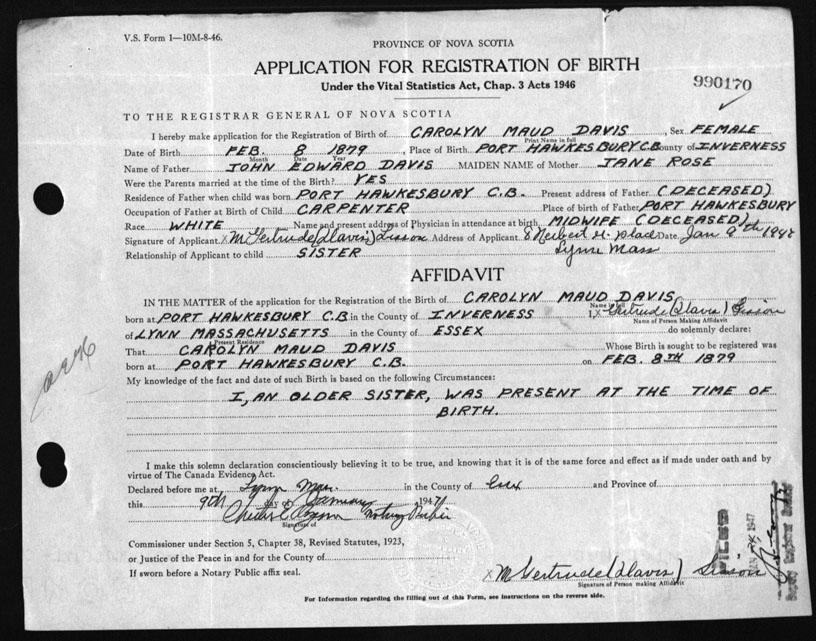 V.S. Form 1—10M-8-46.
PROVINCE OF NOVA SCOTIA
APPLICATION FOR REGISTRATION OF BIRTH
Under the Vital Statistics Act, Chap. 3 Acts 1946
990170
TO THE REGISTRAR GENERAL OF NOVA SCOTIA
I hereby make application for the Registration of Birth of CAROLYN MAUD DAVIS, Sex FEMALE
Print Name in full
Date of Birth FEB. 8 1879, Place of Birth PORT HAWKESBURY C.B. County of INVERNESS
Month Date Year
Name of Father JOHN EDWARD DAVIS MAIDEN NAME of Mother JANE ROSE
Were the Parents married at the time of the Birth? YES
Residence of Father when child was born PORT HAWKESBURY C.B. Present address of Father (DECEASED)
Occupation of Father at Birth of Child CARPENTER Place of birth of Father PORT HAWKESBURY
Race WHITE Name and present address of Physician in attendance at birth MIDWIFE (DECEASED)
Signature of Applicant x M Gertrude (Davis) Sisson Address of Applicant 8 Herbert Place Date Jan 9th
Relationship of Applicant to child SISTER Lynn Mass
AFFIDAVIT
IN THE MATTER of the application for the Registration of the Birth of CAROLYN MAUD DAVIS
born at PORT HAWKESBURY C.B in the County of INVERNESS I, x Gertrude (Davis) Sisson
Name in full
Name of Person Making Affidavit
of LYNN MASSACHUSETTS in the County of ESSEX do solemnly declare:
Present Residence
That CAROLYN MAUD DAVIS Whose Birth is sought to be registered was
born at PORT HAWKESBURY C.B. on FEB. 8TH 1879
My knowledge of the fact and date of such Birth is based on the following Circumstances:
I, AN OLDER SISTER, WAS PRESENT AT THE TIME OF
BIRTH.
I make this solemn declaration conscientiously believing it to be true, and knowing that it is of the same force and effect as if made under oath and by
virtue of The Canada Evidence Act.
Declared before me at Lynn Mass. in the County of Essex and Province of
this 9th day of January 1947
Notary Public
Signature of
Commissioner under Section 5, Chapter 38, Revised Statutes, 1923,
or Justice of the Peace in and for the County of
If sworn before a Notary Public affix seal.
x M Gertrude (Davis) Sisson
Signature of Person making Affidavit
FILED
1947
For Information regarding the filling out of this Form, see instructions on the reverse side.